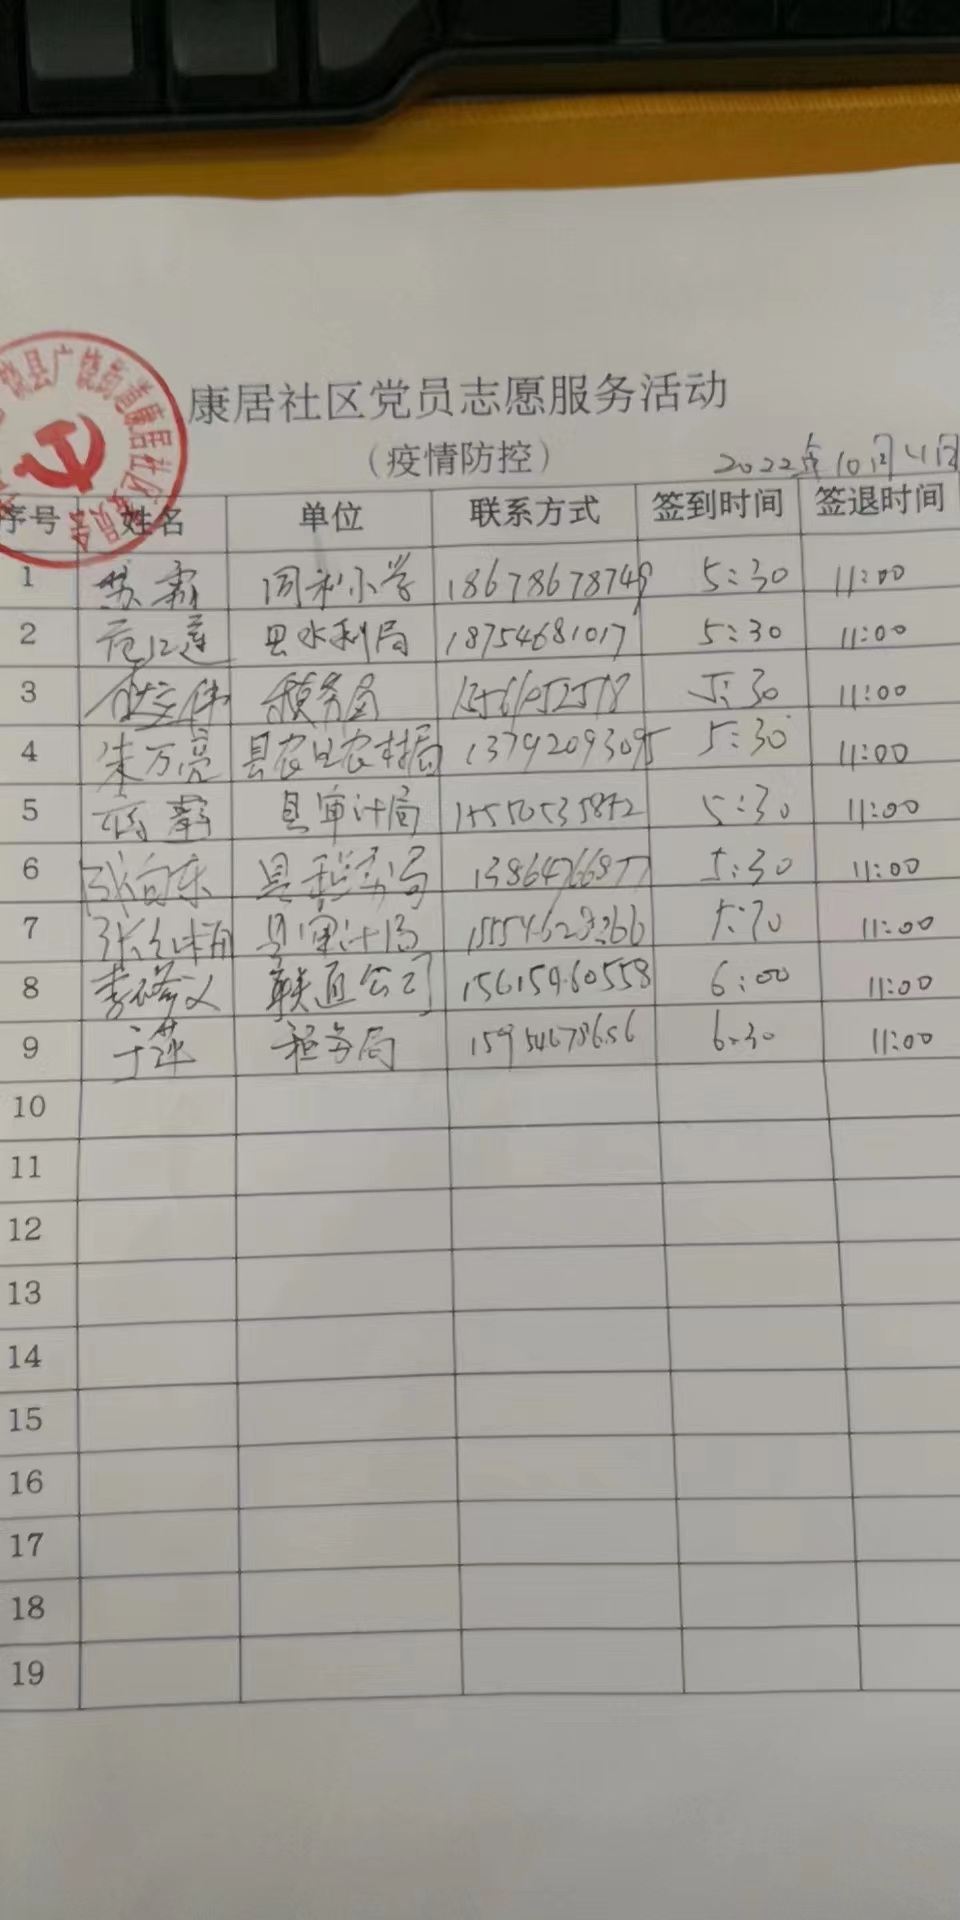 饶县广饶街道康居社区
委员会
康居社区党员志愿服务活动
(疫情防控)
2022年10月11日
序号 姓名 单位 联系方式 签到时间 签退时间
1 苏霜 同和小学 18678678749 5:30 11:00
2 县水利局 18754681017 5:30 11:00
3 税务局 5:30 11:00
4 朱万亮 县农业农村局 13792093095 5:30 11:00
5 县审计局 15550535872 5:30 11:00
6 张向东 县税务局 13864766877 5:30 11:00
7 张 县审计局 11:00
8 李 联通公司 15615960558 6:00 11:00
9 于萍 税务局 15954678656 6:30 11:00
10
11
12
13
14
15
16
17
18
19